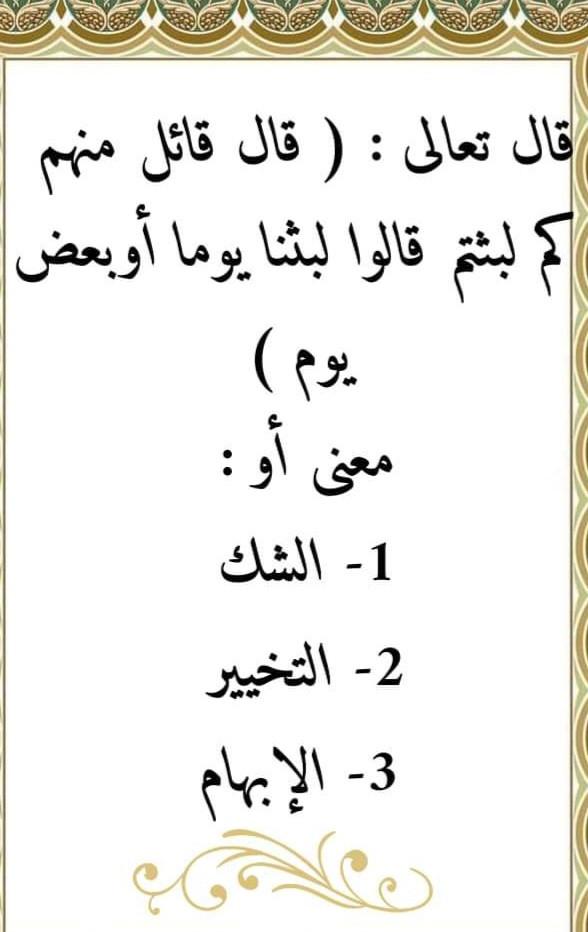 قال تعالى : ( قال قائل منهم
كم لبثتم قالوا لبثنا يوما أوبعض
يوم )
معنى أو :
1- الشك
2- التخيير
3- الإبهام